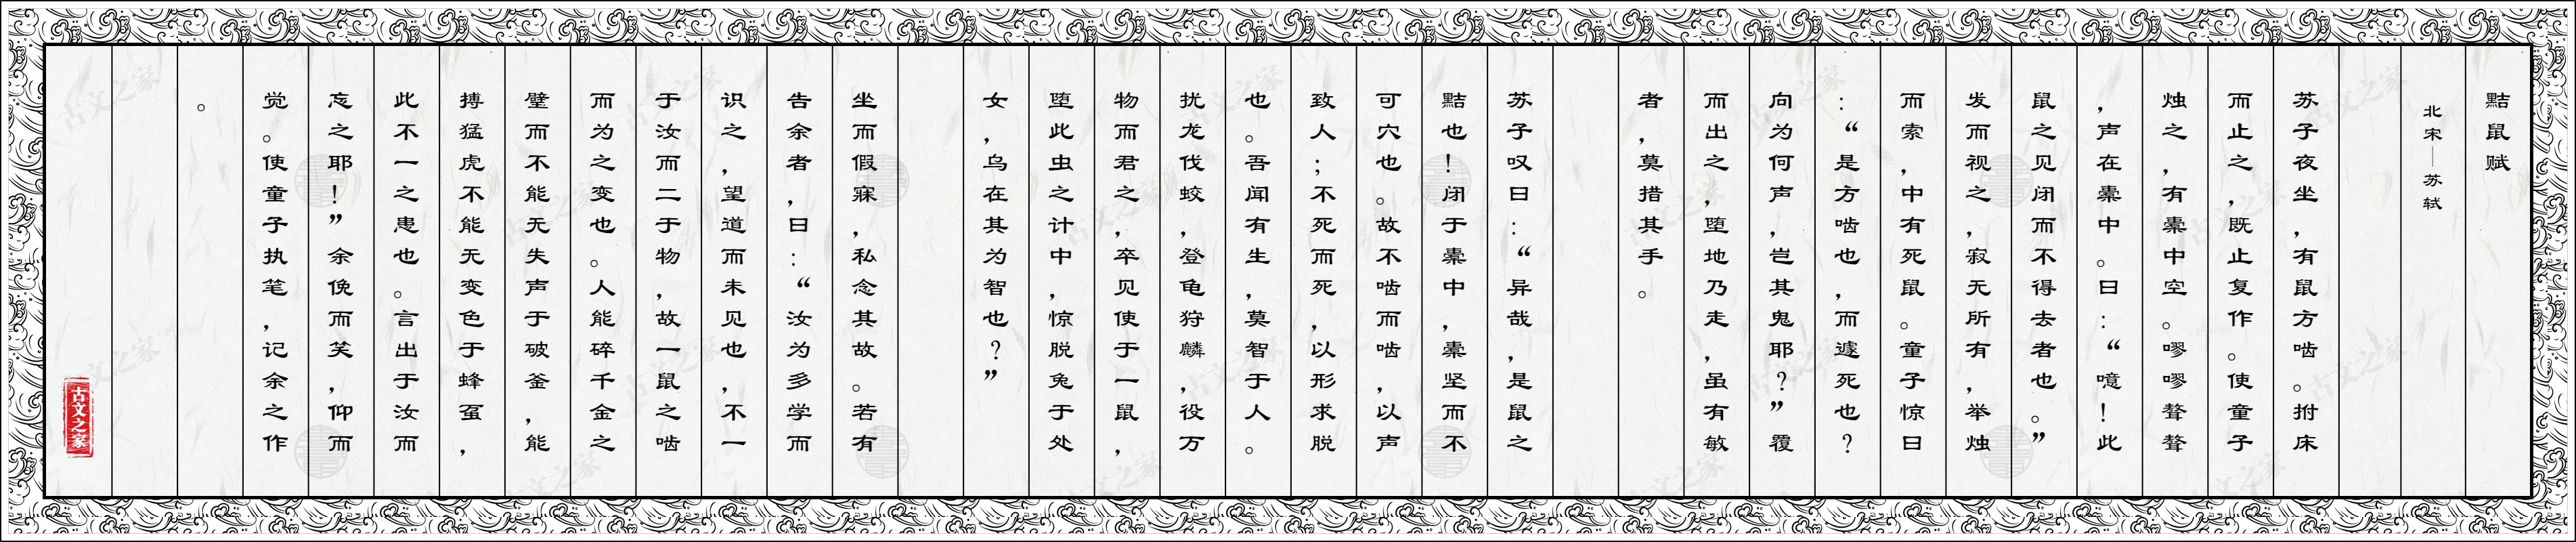 黠鼠赋
北宋——苏轼
苏子夜坐，有鼠方啮。拊床
而止之，既止复作。使童子
烛之，有橐中空。嘐嘐聱聱
，声在橐中。曰：“噫！此
鼠之见闭而不得去者也。”
发而视之，寂无所有，举烛
而索，中有死鼠。童子惊曰
：“是方啮也，而遽死也？
向为何声，岂其鬼耶？”覆
而出之，堕地乃走，虽有敏
者，莫措其手。
苏子叹曰：“异哉，是鼠之
黠也！闭于橐中，橐坚而不
可穴也。故不啮而啮，以声
致人；不死而死，以形求脱
也。吾闻有生，莫智于人。
扰龙伐蛟，登龟狩麟，役万
物而君之，卒见使于一鼠，
堕此虫之计中，惊脱兔于处
女，乌在其为智也？”
坐而假寐，私念其故。若有
告余者，曰：“汝为多学而
识之，望道而未见也，不一
于汝而二于物，故一鼠之啮
而为之变也。人能碎千金之
璧而不能无失声于破釜，能
搏猛虎不能无变色于蜂虿，
此不一之患也。言出于汝而
忘之耶！”余俛而笑，仰而
觉。使童子执笔，记余之作
。
古文之家